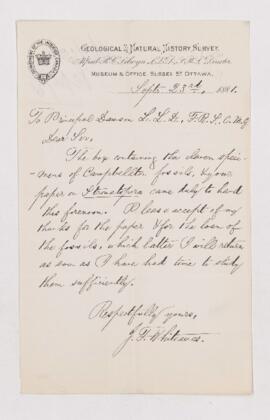 GEOLOGICAL & NATURAL HISTORY SURVEY.
Alfred R. C. Selwyn, L.L.D., F.R.S., Director
MUSEUM & OFFICE, SUSSEX ST OTTAWA.
Sept. 23rd, 1881.
To Principal Dawson L.L.D., F.R.S., C.M.G
Dear Sir,
The box containing the eleven speci-
mens of Campbellton fossils, & your
paper on Stromatopora came duly to hand
this forenoon. Please accept of my
thanks for the paper & for the loan of
the fossils, which latter I will return
as soon as I have had time to study
them sufficiently.
Respectfully yours,
J. F. Whiteaves.